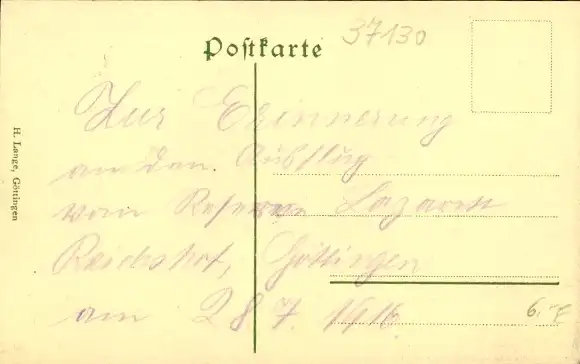 37130
Postkarte
Zur Erinnerung
an den Ausflug
vom Reserve Lazarett
Reichshof, Göttingen
am 28.7.1916
H. Lange, Göttingen
6.-